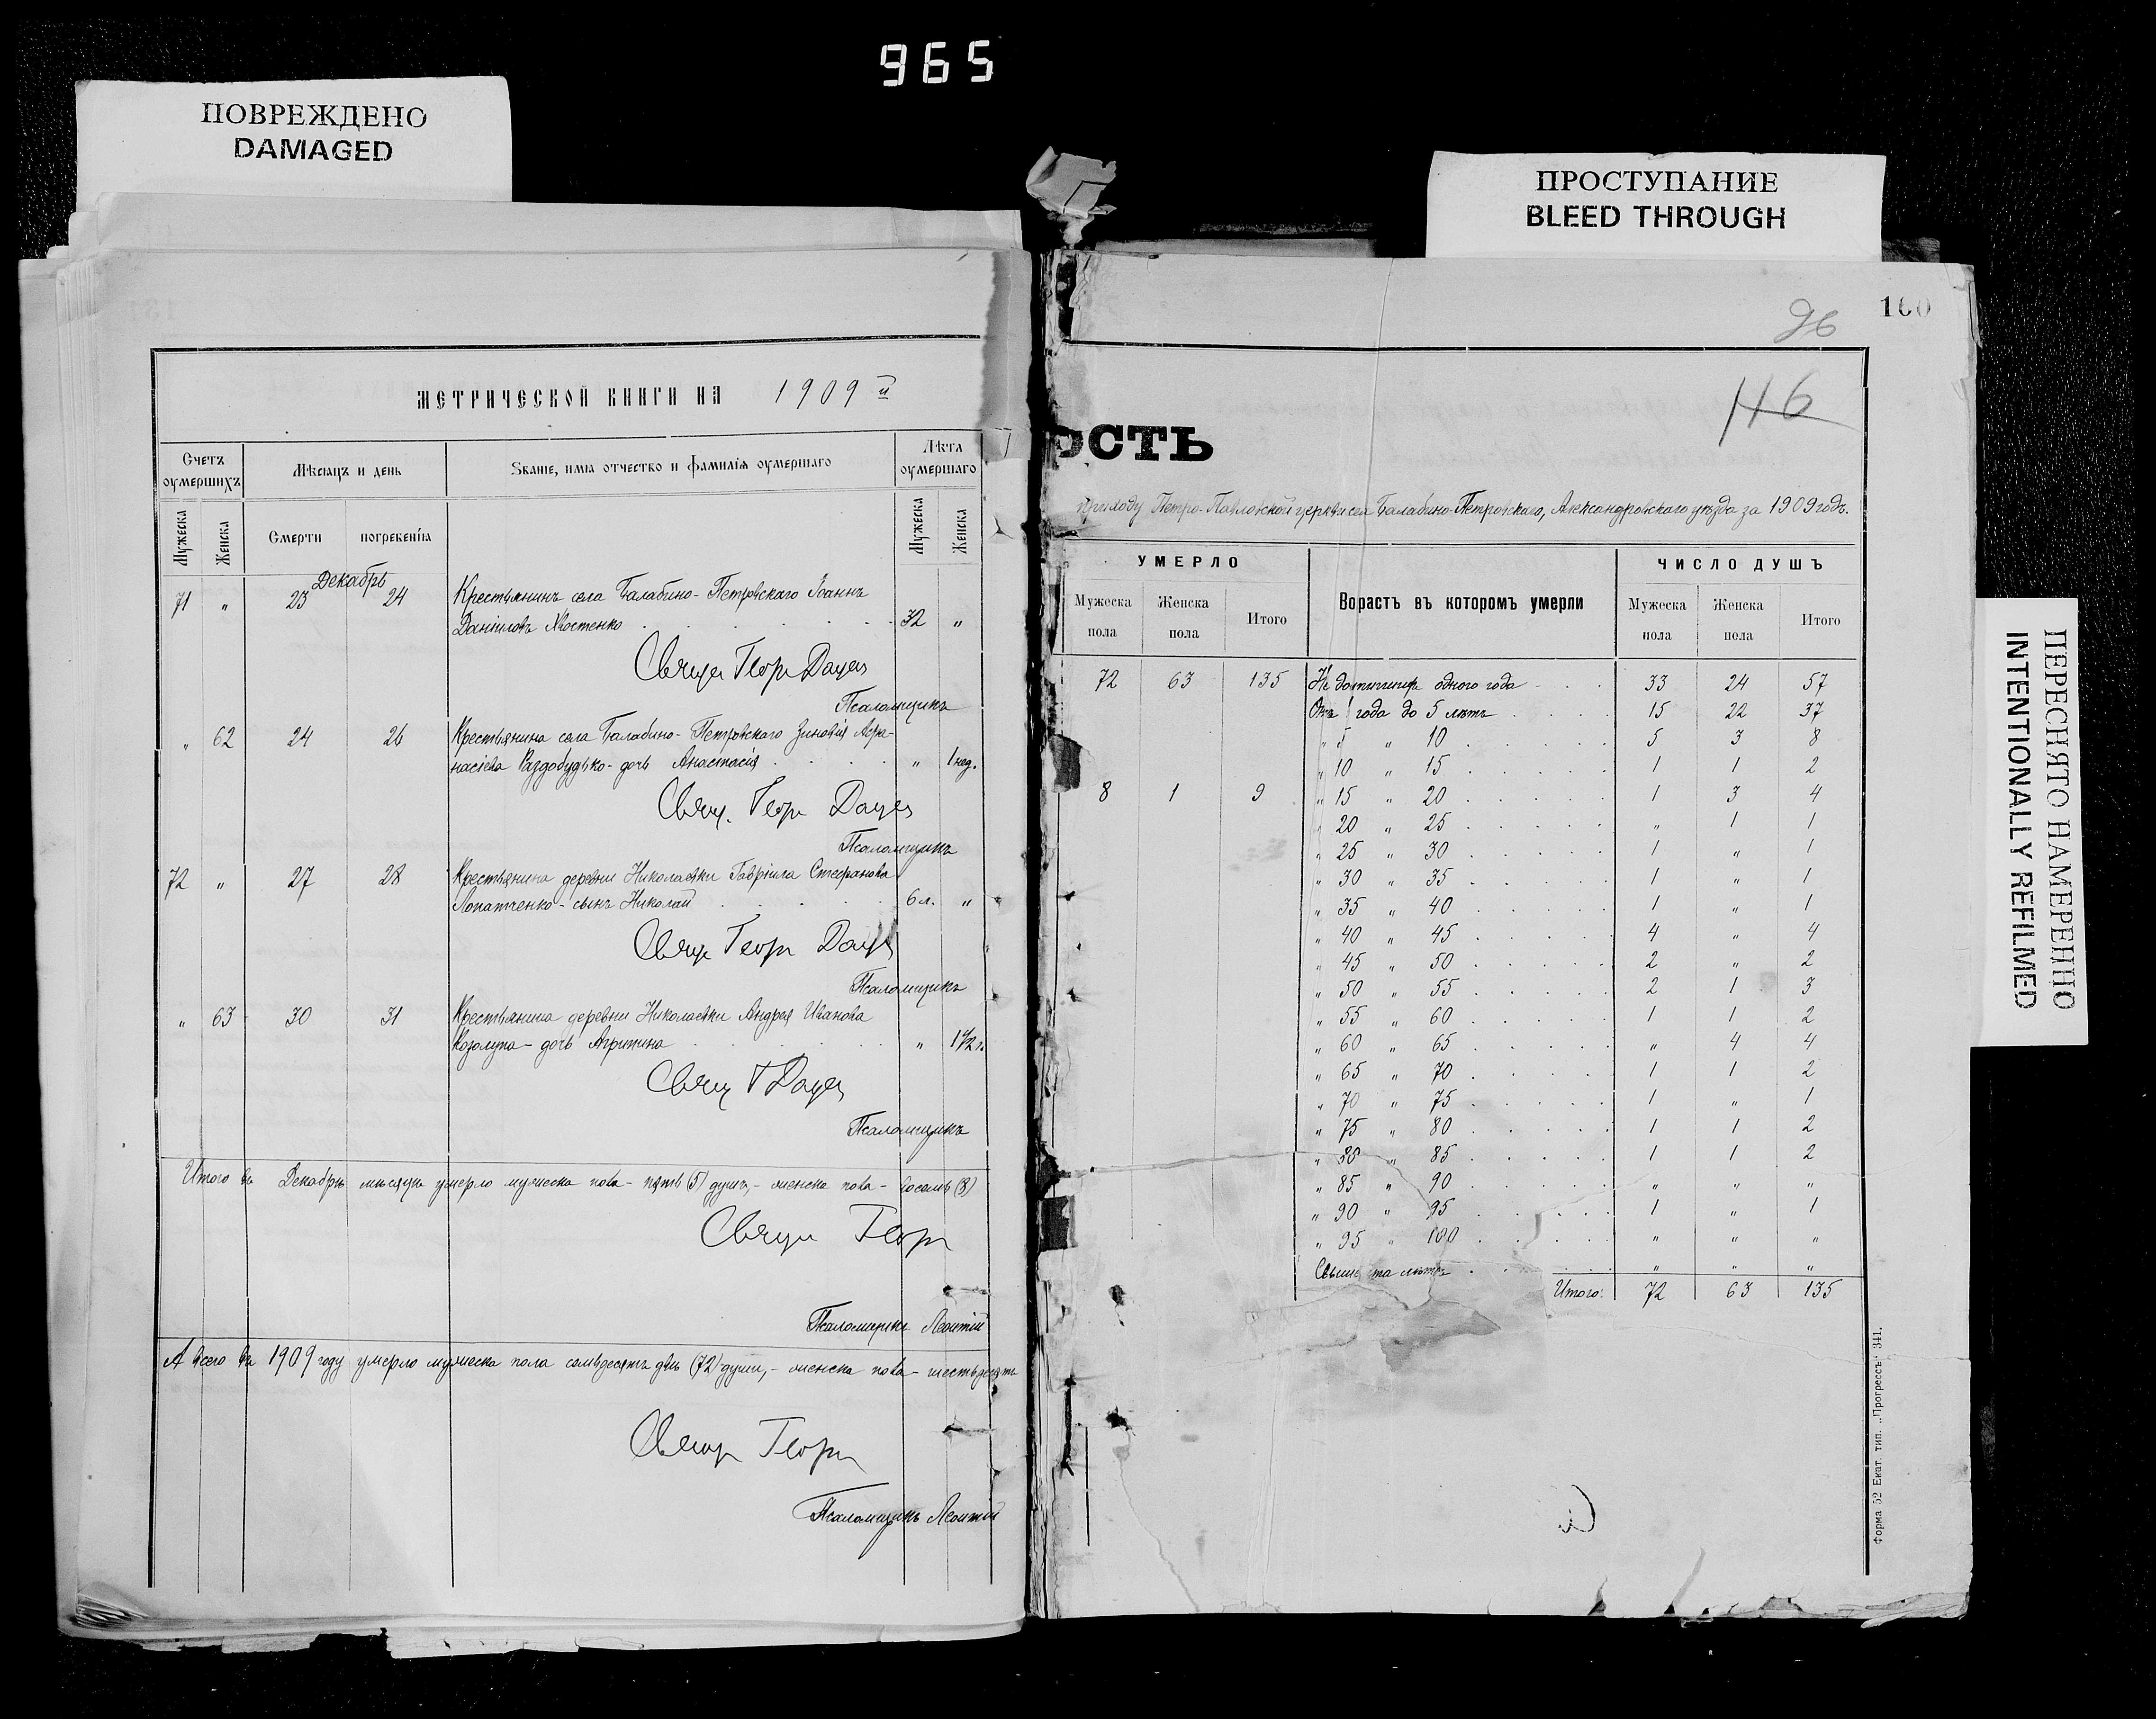 965
ПОВРЕЖДЕНО
DAMAGED
ПРОСТУПАНИЕ
BLEED THROUGH
ПЕРЕСНЯТО НАМЕРЕННО
INTENTIONALLY REFILMED
метрической книги на 1909 й
Счетъ оумершихъ
Мѣсяцъ и день
Званіе, имя отчество и фамилія оумершаго
Лѣта оумершаго
Мужеска Женска Смерти погребенія Мужеска Женска
Декабрь
71 " 23 24 Крестьянинъ села Балабино-Петровскаго Іоаннъ
Даніиловъ Хвостенко 32 "
Георг
Псаломщикъ
" 62 24 26 Крестьянина села Балабино-Петровскаго Зиновія Аѳа-
насіева Раздобудько - дочь Анастасія " 1 нед.
Свящ. Георг
Псаломщикъ
72 " 27 28 Крестьянина деревни Николаевки Гавріила Стефанова
Лопатченко - сынъ Николай 6 л. "
Георг
Псаломщикъ
" 63 30 31 Крестьянина деревни Николаевки Андрея Иванова
Козолупа - дочь Агрипина " 1 1/2 г.
Свящ Г
Псаломщикъ
Итого въ Декабрѣ мѣсяцѣ умерло мужеска пола - пять (5) душъ, - женска пола - восемь (8)
Георг
Псаломщикъ Леонтій
А всего въ 1909 году умерло мужеска пола семьдесятъ двѣ (72) души, - женска пола - шестьдесятъ
Георг
Псаломщикъ Леонтій
160
96
116
ОСТЬ
приходу Петро-Павловской церкви села Балабино-Петровскаго, Александровскаго уѣзда за 1909 годъ.
УМЕРЛО
Ворастъ въ которомъ умерли
ЧИСЛО ДУШЪ
Мужеска пола Женска пола Итого Мужеска пола Женска пола Итого
72 63 135 Не достигшихъ одного года 33 24 57
Отъ 1 года до 5 лѣтъ 15 22 37
" 5 " 10 5 3 8
" 10 " 15 1 1 2
8 1 9 " 15 " 20 1 3 4
" 20 " 25 " 1 1
" 25 " 30 1 " 1
" 30 " 35 1 " 1
" 35 " 40 1 " 1
" 40 " 45 4 " 4
" 45 " 50 2 " 2
" 50 " 55 2 1 3
" 55 " 60 1 1 2
" 60 " 65 " 4 4
" 65 " 70 1 1 2
" 70 " 75 1 " 1
" 75 " 80 1 1 2
" 80 " 85 1 1 2
" 85 " 90 " " "
" 90 " 95 1 " 1
" 95 " 100 " " "
Свыше ста лѣтъ " " "
Итого: 72 63 135
Форма 52 Екат. тип. „Прогрессъ" 341.